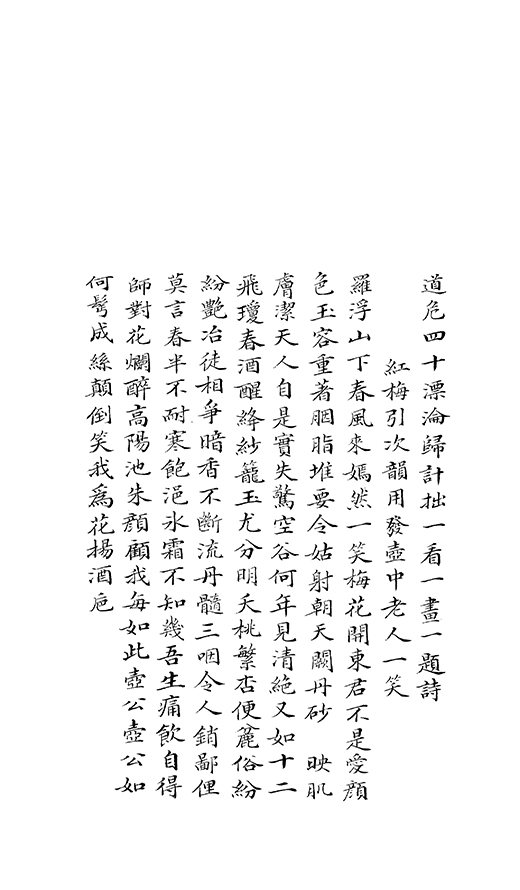 道危四十漂淪歸計拙一看一畫一題詩
紅梅引次韻用發壺中老人一笑
羅浮山下春風來嫣然一笑梅花開東君不是愛顏
色玉容重著胭脂堆要令姑射朝天闕丹砂 映肌
膚潔天人自是實失驚空谷何年見清絕又如十二
飛瓊春酒醒絳紗籠玉尤分明夭桃繁杏便麄俗紛
紛艷冶徒相爭暗香不斷流丹髓三咽令人銷鄙俚
莫言春半不耐寒飽浥氷霜不知幾吾生痛飲自得
師對花爛醉高陽池朱顏顧我每如此壺公壺公如
何髩成絲顛倒笑我為花揚酒巵